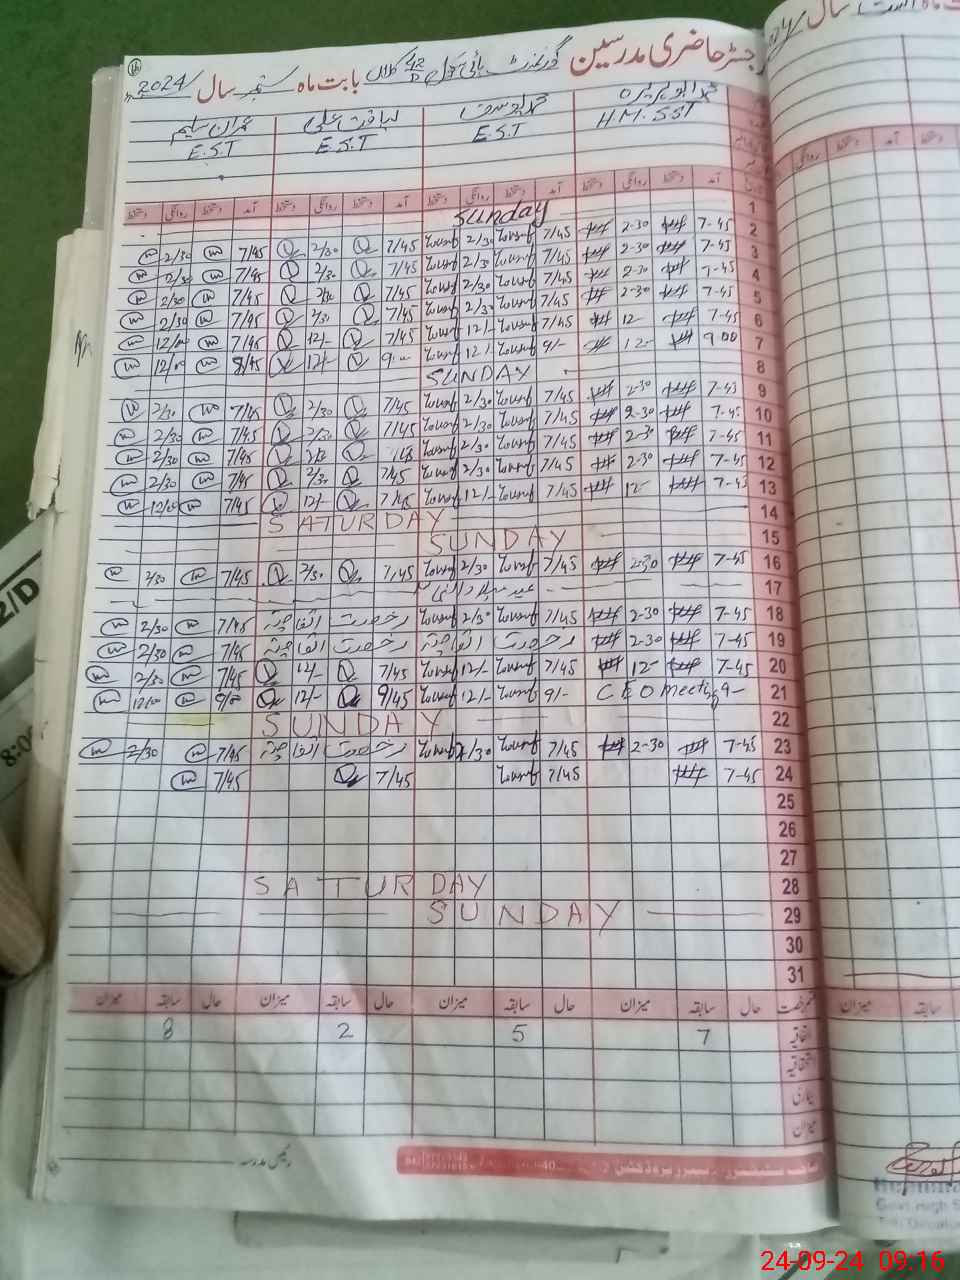 رجسٹر حاضری مدرسین گورنمنٹ ہائی بابت ماہ ستمبر سال 2024
محمد یوسف لیاقت علی عمران سلیم
H.M. SST E.S.T E.S.T E.S.T
آمد دستخط روانگی دستخط آمد دستخط روانگی دستخط آمد دستخط روانگی دستخط آمد دستخط روانگی دستخط
1 Sunday
2 7-45 2-30 7/45 Yousuf 2/30 Yousuf 7/45 2/30 7/45 2/30
3 7-45 2-30 7/45 Yousuf 2/30 Yousuf 7/45 2/30 7/45 2/30
4 7-45 2-30 7/45 Yousuf 2/30 Yousuf 7/45 2/30 7/45 2/30
5 7-45 2-30 7/45 Yousuf 2/30 Yousuf 7/45 2/30 7/45 2/30
6 7-45 12- 7/45 Yousuf 12/- Yousuf 7/45 12/- 7/45 12/00
7 9-00 12- 9/- Yousuf 12/- Yousuf 9:00 12/- 8/45 12/00
8 SUNDAY
9 7-45 2-30 7/45 Yousuf 2/30 Yousuf 7/45 2/30 7/45 2/30
10 7-45 2-30 7/45 Yousuf 2/30 Yousuf 7/45 2/30 7/45 2/30
11 7-45 2-30 7/45 Yousuf 2/30 Yousuf 7/45 2/30
12 7-45 2-30 7/45 Yousuf 2/30 Yousuf 7/45 2/30 7/45 2/30
13 7-45 12- 7/45 Yousuf 12/- Yousuf 7/45 12/- 7/45 12/00
14 SATURDAY
15 SUNDAY
16 7-45 2-30 7/45 Yousuf 2/30 Yousuf 7/45 2/30 7/45 2/30
17 عید میلاد النبی
18 7-45 2-30 7/45 Yousuf 2/30 Yousuf رخصت اتفاقیہ 7/45 2/30
19 7-45 2-30 رخصت اتفاقیہ رخصت اتفاقیہ 7/45 2/30
20 7-45 12- 7/45 Yousuf 12/- Yousuf 7/45 12/- 7/45 2/30
21 CEO meeting 9/- Yousuf 12/- Yousuf 9/45 12/- 9/00 12/00
22 SUNDAY
23 7-45 2-30 7/45 Yousuf 2/30 Yousuf رخصت اتفاقیہ 7/45 2/30
24 7-45 7/45 Yousuf 7/45 7/45
25
26
27
28 SATURDAY
29 SUNDAY
30
31
قسم رخصت حال سابقہ میزان حال سابقہ میزان حال سابقہ میزان حال سابقہ میزان
اتفاقیہ 7 5 2 8
استحقاقیہ
بیماری
میزان
رئیس مدرسہ
2/D
24-09-24 09:16